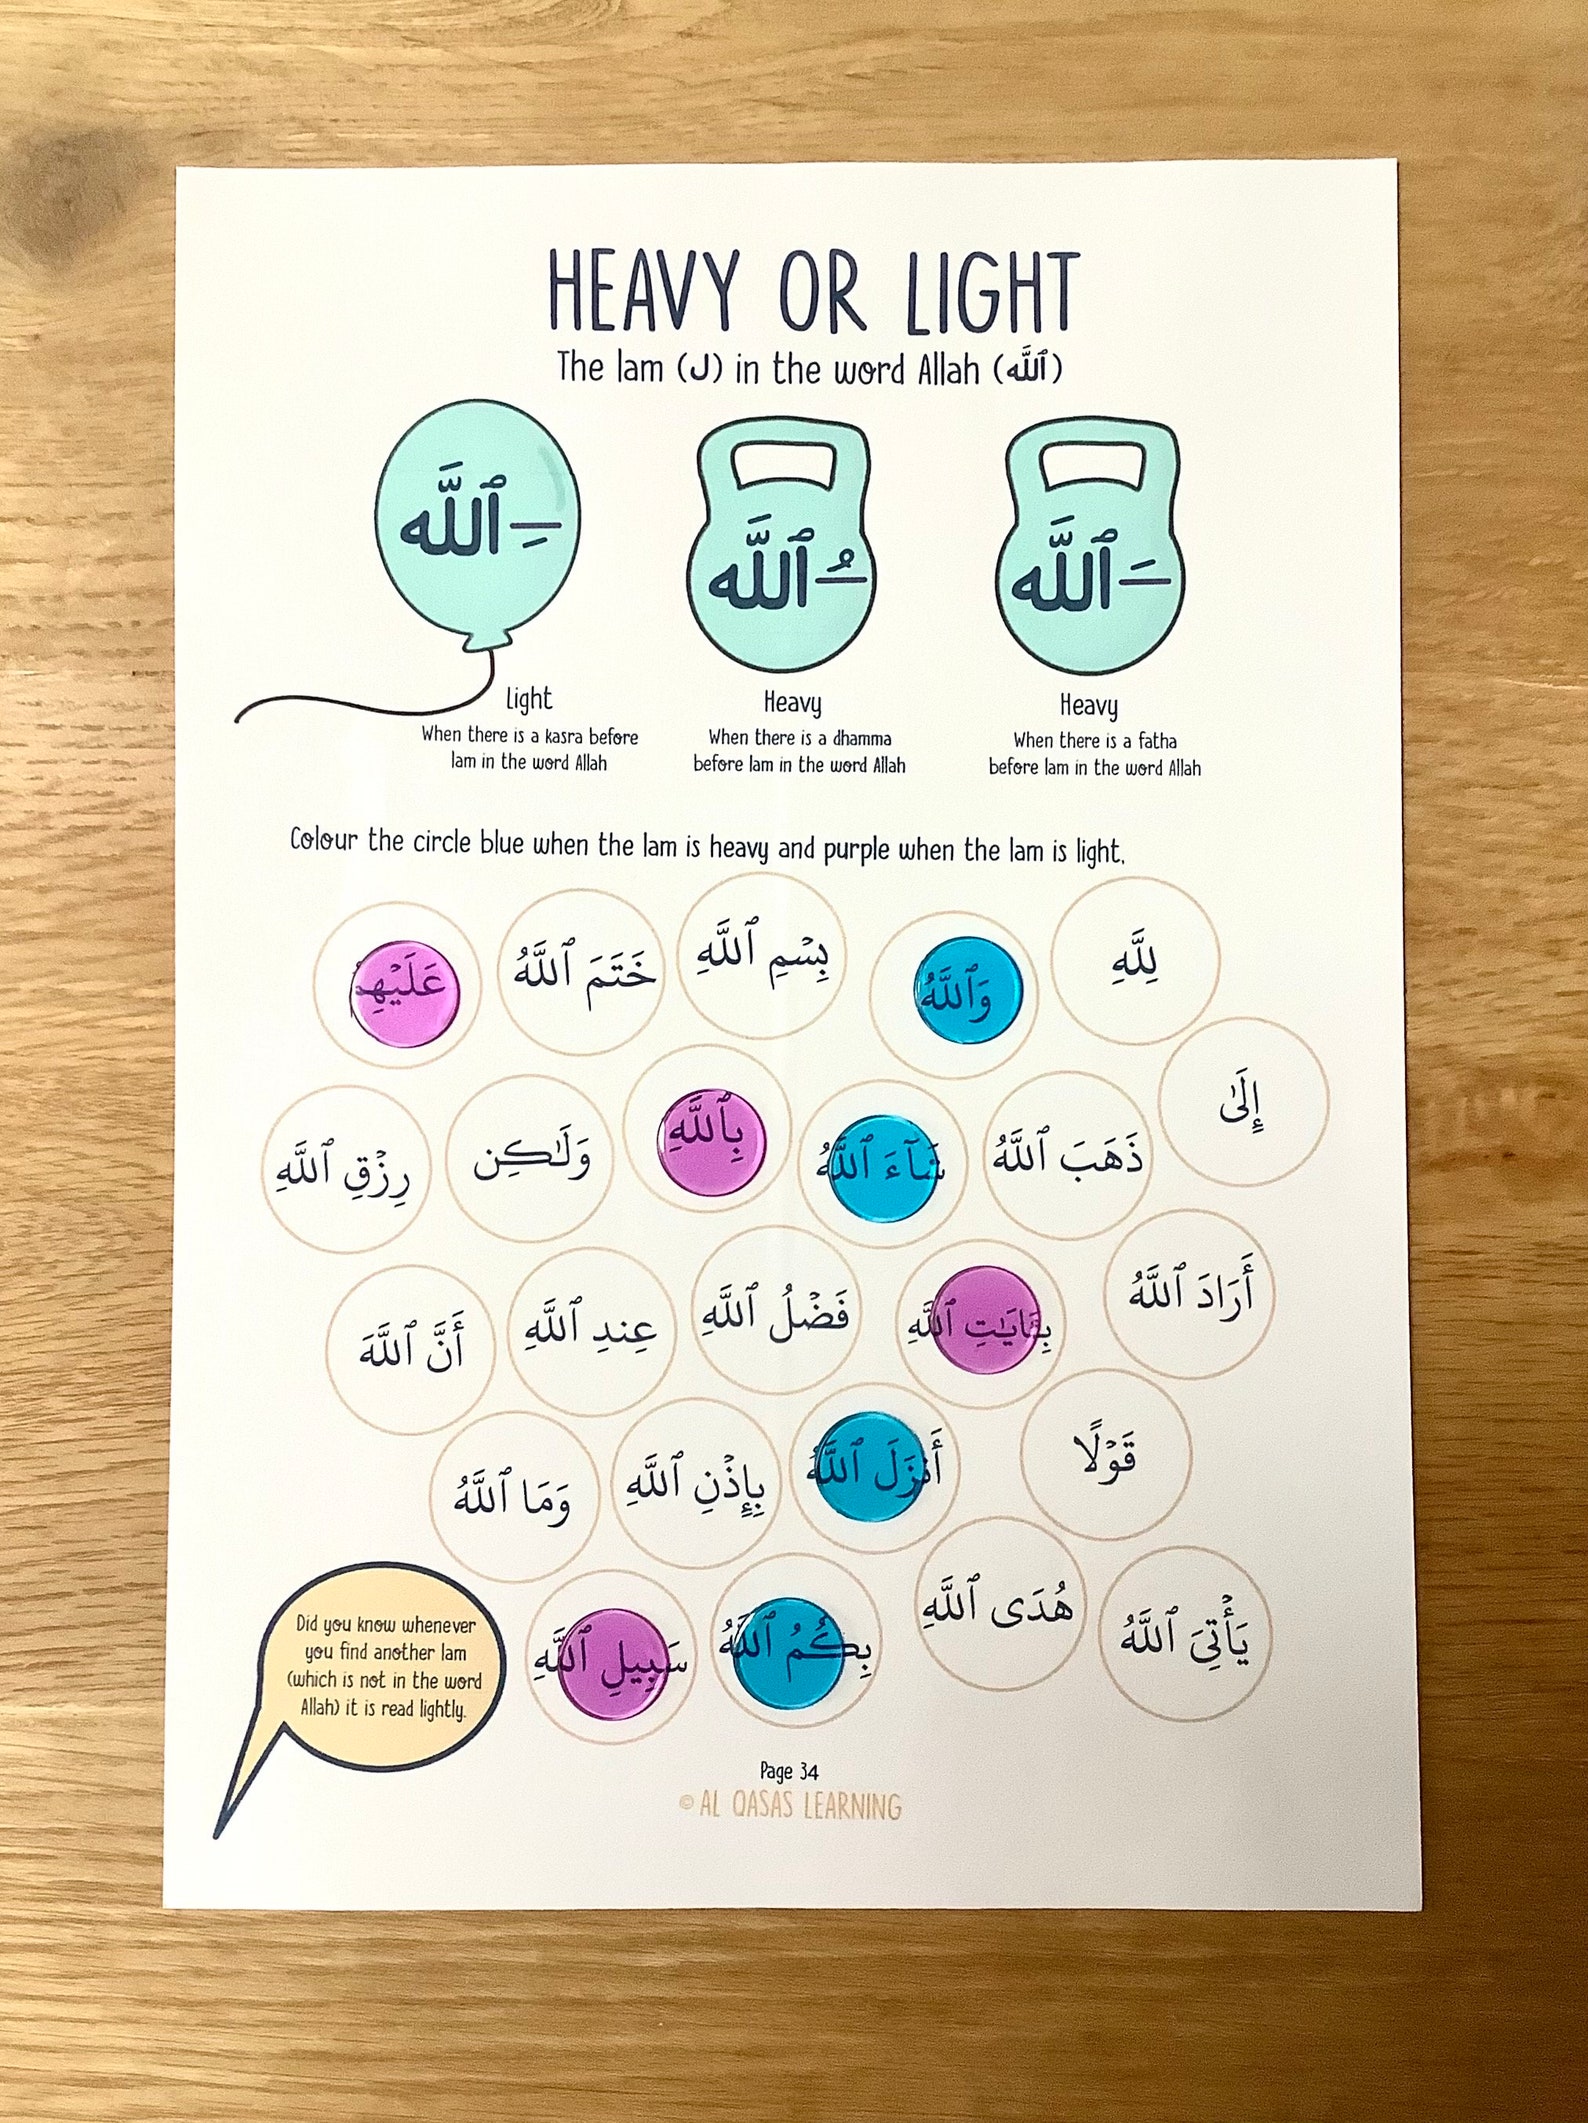 HEAVY OR LIGHT
The lam (ل) in the word Allah (ٱللَّه)
ـِ ٱللَّه
ـُ ٱللَّه
ـَ ٱللَّه
Light
When there is a kasra before
lam in the word Allah
Heavy
When there is a dhamma
before lam in the word Allah
Heavy
When there is a fatha
before lam in the word Allah
Colour the circle blue when the lam is heavy and purple when the lam is light.
لِلَّهِ
وَٱللَّهُ
بِسْمِ ٱللَّهِ
خَتَمَ ٱللَّهُ
عَلَيْهِمْ
إِلَىٰ
ذَهَبَ ٱللَّهُ
شَآءَ ٱللَّهُ
بِٱللَّهِ
وَلَـٰكِن
رِزْقِ ٱللَّهِ
أَرَادَ ٱللَّهُ
بِـَٔايَـٰتِ ٱللَّهِ
فَضْلُ ٱللَّهِ
عِندِ ٱللَّهِ
أَنَّ ٱللَّهَ
قَوْلًا
أَنزَلَ ٱللَّهُ
بِإِذْنِ ٱللَّهِ
وَمَا ٱللَّهُ
يَأْتِىَ ٱللَّهُ
هُدَى ٱللَّهِ
بِكُمُ ٱللَّهُ
سَبِيلِ ٱللَّهِ
Did you know whenever
you find another lam
(which is not in the word
Allah) it is read lightly.
Page 34
© AL QASAS LEARNING